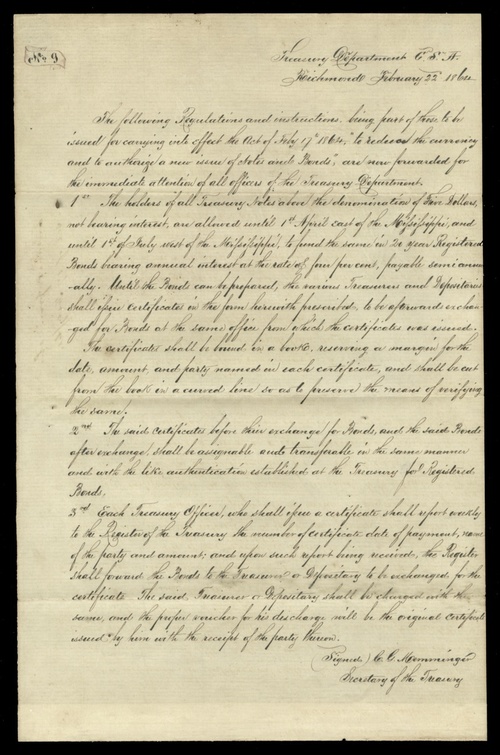 No 9
Treasury Department C. S. A.
Richmond February 22 1864
The following Regulations and instructions, being part of those to be
issued for carrying into effect the Act of Feby 17th 1864, "to reduce the currency
and to authorize a new issue of Notes and Bonds", are now forwarded for
the immediate attention of all officers of the Treasury Department.
1st The holders of all Treasury Notes above the denomination of Five Dollars,
not bearing interest, are allowed until 1st April east of the Mississippi, and
until 1st of July west of the Mississippi, to fund the same in 20 year Registered
Bonds bearing annual interest at the rate of four per cent, payable semi annu-
-ally. Until the Bonds can be prepared, the various Treasurers and Depositaries
shall issue certificates in the form herewith prescribed, to be afterwards exchan-
ged for Bonds at the same office from which the certificates was issued.
The certificates shall be bound in a book, reserving a margin for the
date, amount, and party named in each certificate, and shall be cut
from the book in a curved line so as to preserve the means of verifying
the same.
2nd The said certificates before their exchange for Bonds, and the said Bonds
after exchange, shall be assignable and transferable in the same manner
and with the like authentication established at the Treasury for Registered
Bonds.
3rd Each Treasury Officer, who shall issue a certificate shall report weekly
to the Register of the Treasury the number of certificate, date of payment, name
of the party and amount; and upon such report being received, the Register
shall forward the Bonds to the Treasurer or Depositary to be exchanged for the
certificate. The said Treasurer or Depositary shall be charged with the
same, and the proper voucher for his discharge will be the original certificate
issued by him with the receipt of the party thereon.
(Signed) C. G. Memminger
Secretary of the Treasury